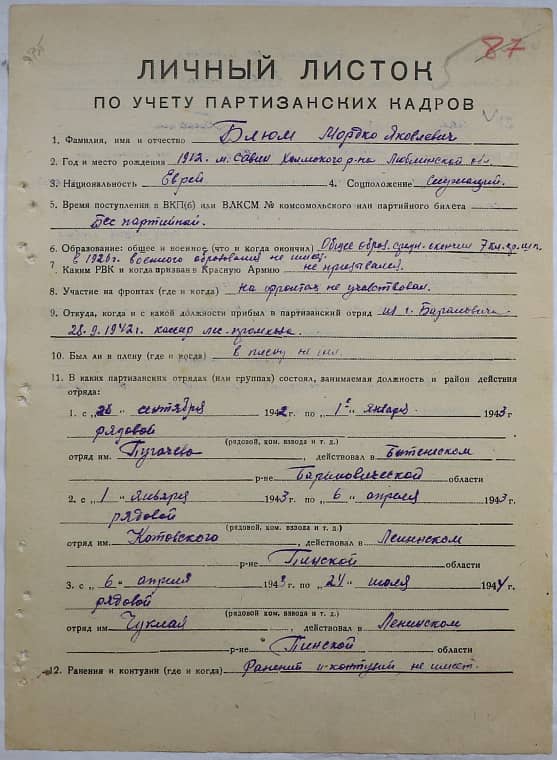 87
ЛИЧНЫЙ ЛИСТОК
ПО УЧЕТУ ПАРТИЗАНСКИХ КАДРОВ
1. Фамилия, имя и отчество Блюм Мордко Яковлевич
2. Год и место рождения 1912 м. Савин Холмского р-на Люблинской обл.
3. Национальность Еврей 4. Соцположение Служащий.
5. Время поступления в ВКП(б) или ВЛКСМ № комсомольского или партийного билета
Бес партийной.
6. Образование: общее и военное (что и когда окончил) Общее образ. средн. окончил 7 кл.
в 1926 г. военного образования не имеет.
7. Каким РВК и когда призван в Красную Армию не призывался.
8. Участие на фронтах (где и когда) на фронтах не участвовал.
9. Откуда, когда и с какой должности прибыл в партизанский отряд из г. Барановичи
28.9.1942 г. кассир лес-промхоза.
10. Был ли в плену (где и когда) в плену не был.
11. В каких партизанских отрядах (или группах) состоял, занимаемая должность и район действия
отряда:
1. с „28„ сентября 1942 г. по „1„ января 1943 г
рядовой
(рядовой, ком. взвода и т. д.)
отряд им. Пугачева, действовал в Бытенском
р-не Барановической области
2. с „1„ января 1943 г. по „6„ апреля 1943 г.
рядовой
(рядовой, ком. взвода и т. д.)
отряд им. Котовского, действовал в Ленинском
р-не Пинской области
3. с „6„ апреля 1943 г. по „24„ июля 1944 г.
рядовой
(рядовой ком. взвода и т. д.)
отряд им. Чуклая, действовал в Ленинском
р-не Пинской области
12. Ранения и контузии (где и когда) Ранений и контузий не имеет.